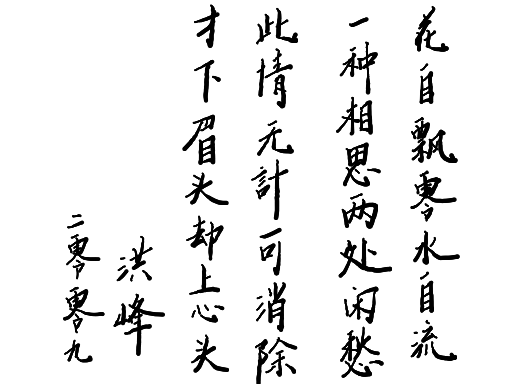 花自飘零水自流
一种相思两处闲愁
此情无計可消除
才下眉头却上心头
洪峰
二零零九